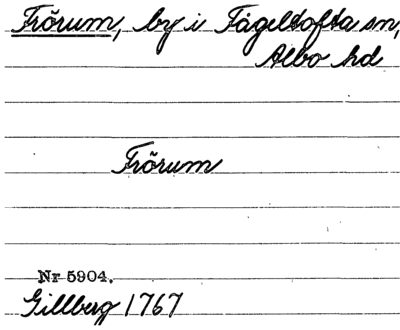 Frõrum, by i Fågeltofta sn,
Albo hd
Frõrum
Nr 5904.
Gillberg 1767